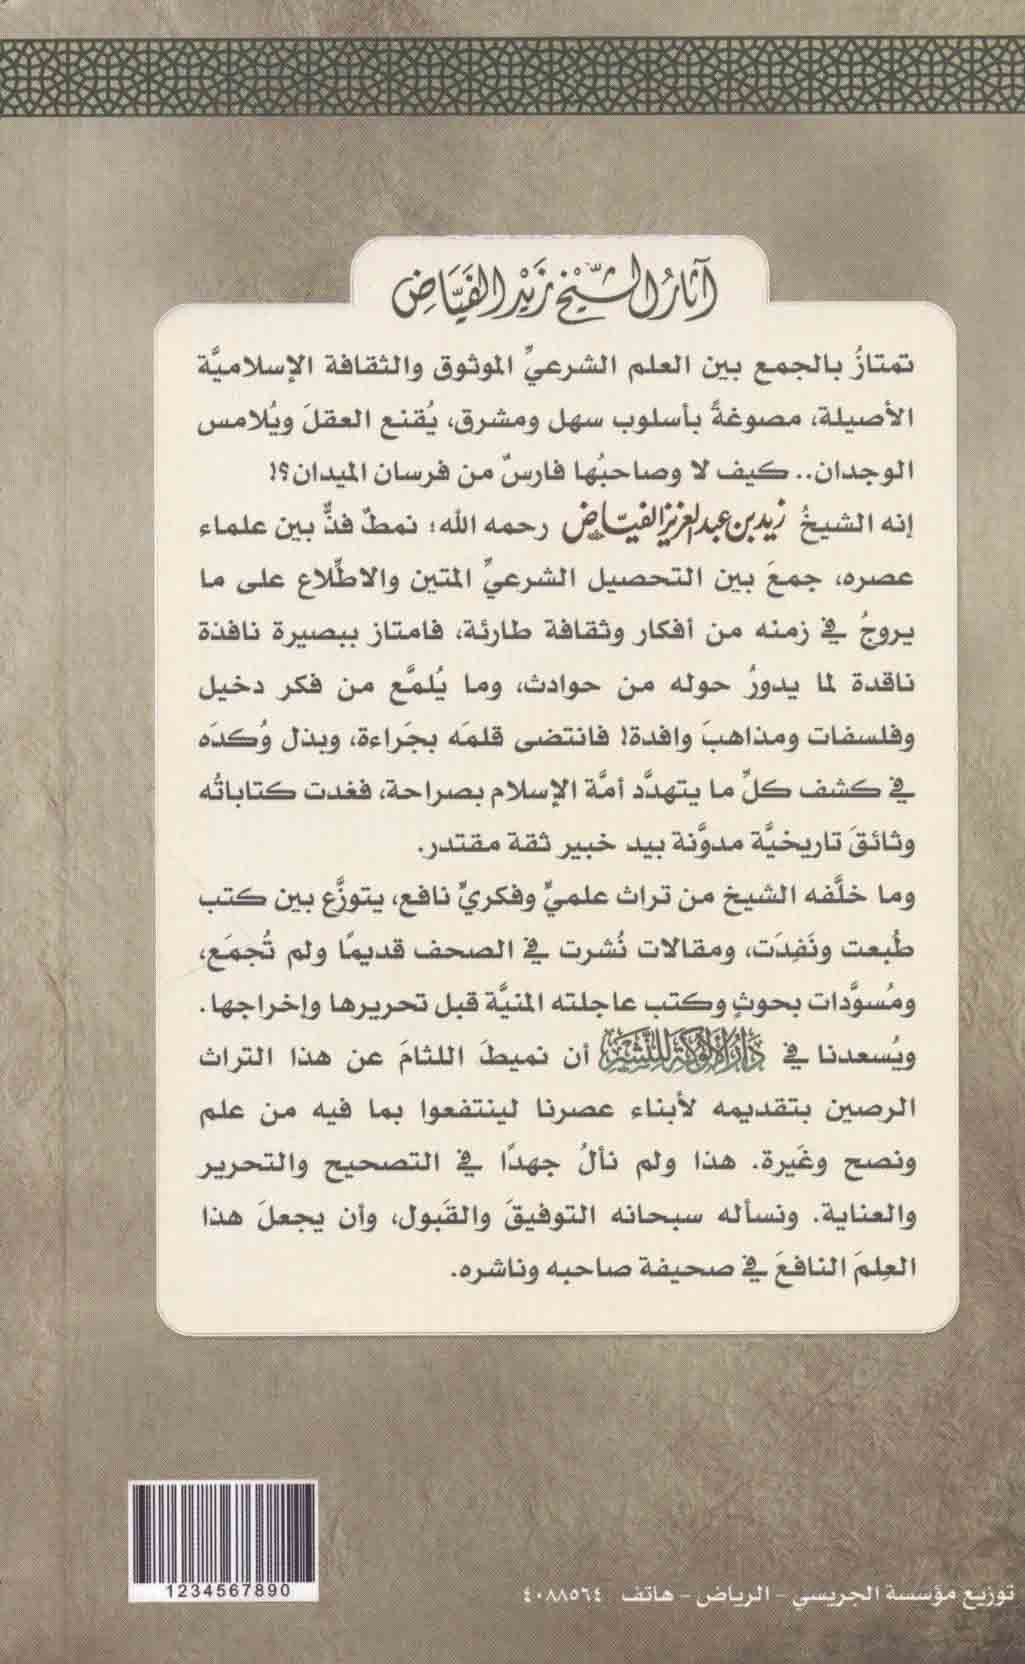 آثارُ الشَّيْخ زَيْد الفَيَّاض
تمتازُ بالجمع بين العلم الشرعيِّ الموثوق والثقافة الإسلاميَّة
الأصيلة، مصوغةً بأسلوب سهل ومشرق، يُقنع العقلَ ويُلامس
الوجدان.. كيف لا وصاحبُها فارسٌ من فرسان الميدان؟!
إنه الشيخُ زيد بن عبد العزيز الفيّاض رحمه الله؛ نمطٌ فذٌّ بين علماء
عصره، جمعَ بين التحصيل الشرعيِّ المتين والاطِّلاع على ما
يروجُ في زمنه من أفكار وثقافة طارئة، فامتاز ببصيرة نافذة
ناقدة لما يدورُ حوله من حوادث، وما يُلمَّع من فكر دخيل
وفلسفات ومذاهبَ وافدة! فانتضى قلمَه بجَراءة، وبذل وُكدَه
في كشف كلِّ ما يتهدَّد أمَّة الإسلام بصراحة، فغدت كتاباتُه
وثائقَ تاريخيَّة مدوَّنة بيد خبير ثقة مقتدر.
وما خلَّفه الشيخ من تراث علميٍّ وفكريٍّ نافع، يتوزَّع بين كتب
طُبعت ونَفِدَت، ومقالات نُشرت في الصحف قديمًا ولم تُجمَع،
ومُسوَّدات بحوثٍ وكتب عاجلته المنيَّة قبل تحريرها وإخراجها.
ويُسعدنا في دَارُ الأَلُوكَة لِلنَّشِر أن نميطَ اللثامَ عن هذا التراث
الرصين بتقديمه لأبناء عصرنا لينتفعوا بما فيه من علم
ونصح وغَيرة. هذا ولم نألُ جهدًا في التصحيح والتحرير
والعناية. ونسأله سبحانه التوفيقَ والقَبول، وأن يجعلَ هذا
العِلمَ النافعَ في صحيفة صاحبه وناشره.
1234567890
توزيع مؤسسة الجريسي - الرياض - هاتف ٤٠٨٨٥٦٤